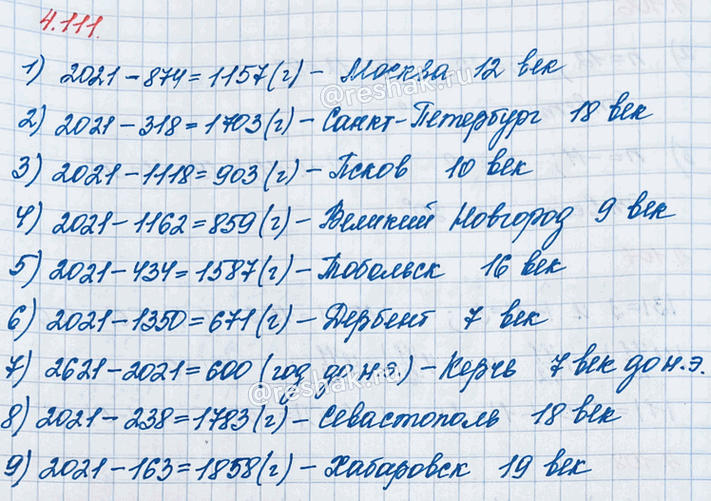 4.111.
1) 2021 - 874 = 1157 (г) - Москва 12 век
@reshak.ru
2) 2021 - 318 = 1703 (г) - Санкт-Петербург 18 век
3) 2021 - 1118 = 903 (г) - Псков 10 век
4) 2021 - 1162 = 859 (г) - Великий Новгород 9 век
5) 2021 - 434 = 1587 (г) - Тобольск 16 век
6) 2021 - 1350 = 671 (г) - Дербент 7 век
7) 2621 - 2021 = 600 (год до н.э.) - Керчь 7 век до н.э.
@reshak.ru
8) 2021 - 238 = 1783 (г) - Севастополь 18 век
9) 2021 - 163 = 1858 (г) - Хабаровск 19 век